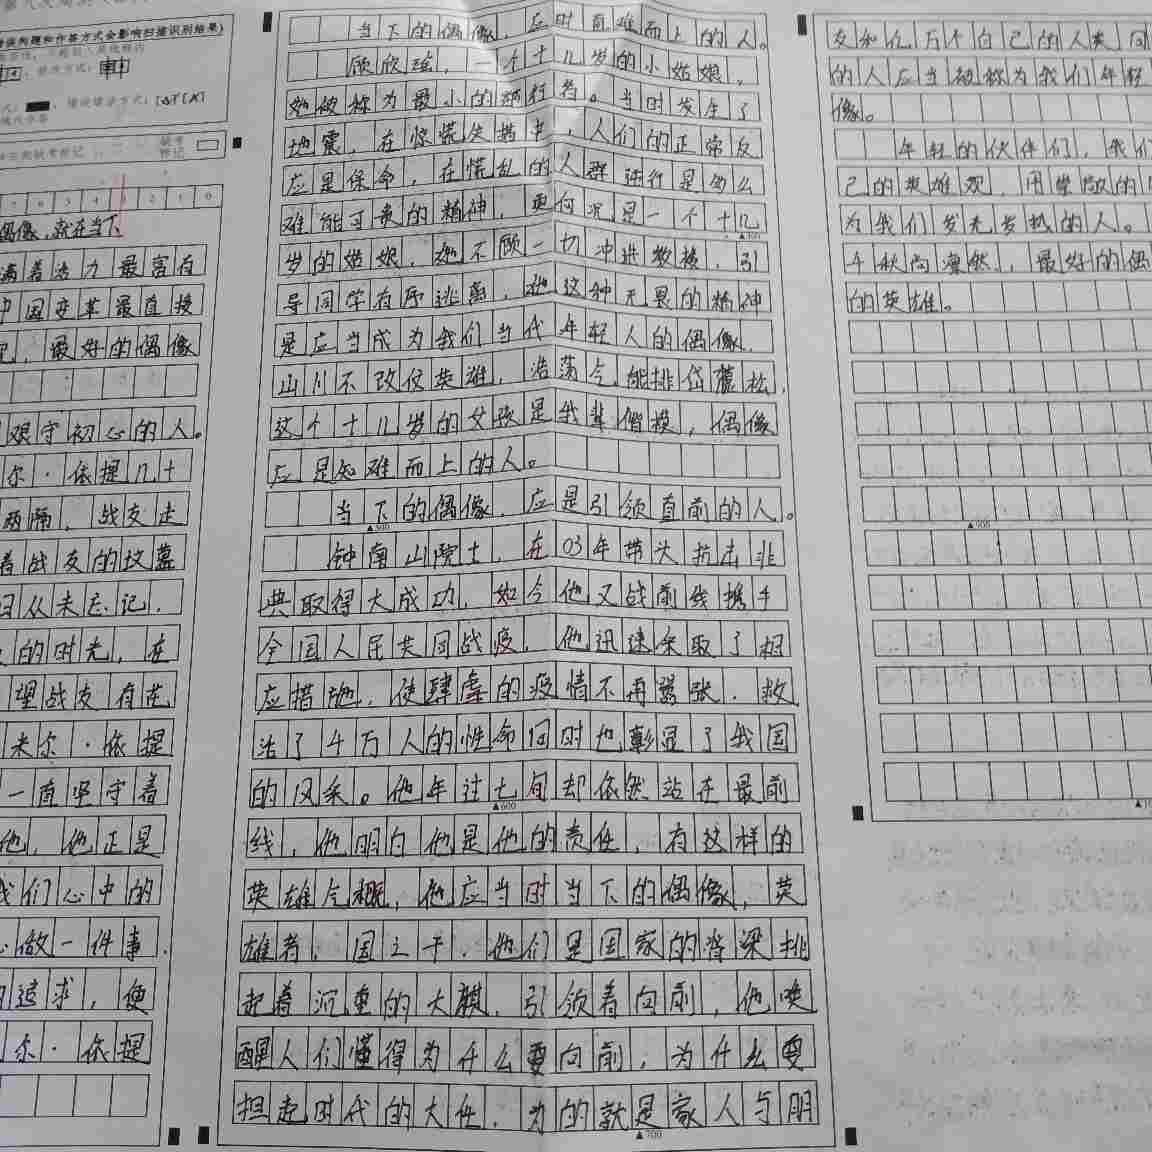 偶像,就在当下
满着活力最富有
中国变革最直接
最好的偶像
艰守初心的人。
尔·依提几十
两隔,战友走
着战友的坟墓
日从未忘记,
的时光,在
望战友有茫
米尔·依提
一直坚守着
他,他正是
我们心中的
做一件事,
追求,便
尔·依提
当下的偶像,应时直难而上的人。
顾欣瑶,一个十几岁的小姑娘,
她被称为最小的逆行者。当时发生了
地震,在惊慌失措中,人们的正常反
应是保命,在慌乱的人群逆行是多么
难能可贵的精神,更何况是一个十几
▲300
岁的姑娘,她不顾一切冲进教楼,引
导同学有序逃离,她这种无畏的精神
是应当成为我们当代年轻人的偶像,
山川不改仗英雄,浩荡今能排岱麓松,
这个十几岁的女孩是我辈楷模,偶像
应是知难而上的人。
当下的偶像,应是引领直前的人。
钟南山院士,在03年带头抗击非
典取得大成功,如今他又战前线携手
全国人民共同战疫,他迅速采取了相
应措施,使肆虐的疫情不再嚣张,救
活了千万人的性命同时也彰显了我国
的风采。他年过七旬却依然站在最前
▲600
线,他明白他是他的责任,有这样的
英雄气概,他应当时当下的偶像,英
雄者,国之干,他们是国家的脊梁排
起着沉重的大麒,引领着向前,他唤
醒人们懂得为什么要向前,为什么要
担起时代的大任,为的就是家人与朋
▲700
友和亿万个自己的人类同
的人应当被称为我们年轻
像。
年轻的伙伴们,我们
己的英雄观,用崇敬的
为我们发光发热的人。
千秋尚凛然,最好的偶
的英雄。
▲900